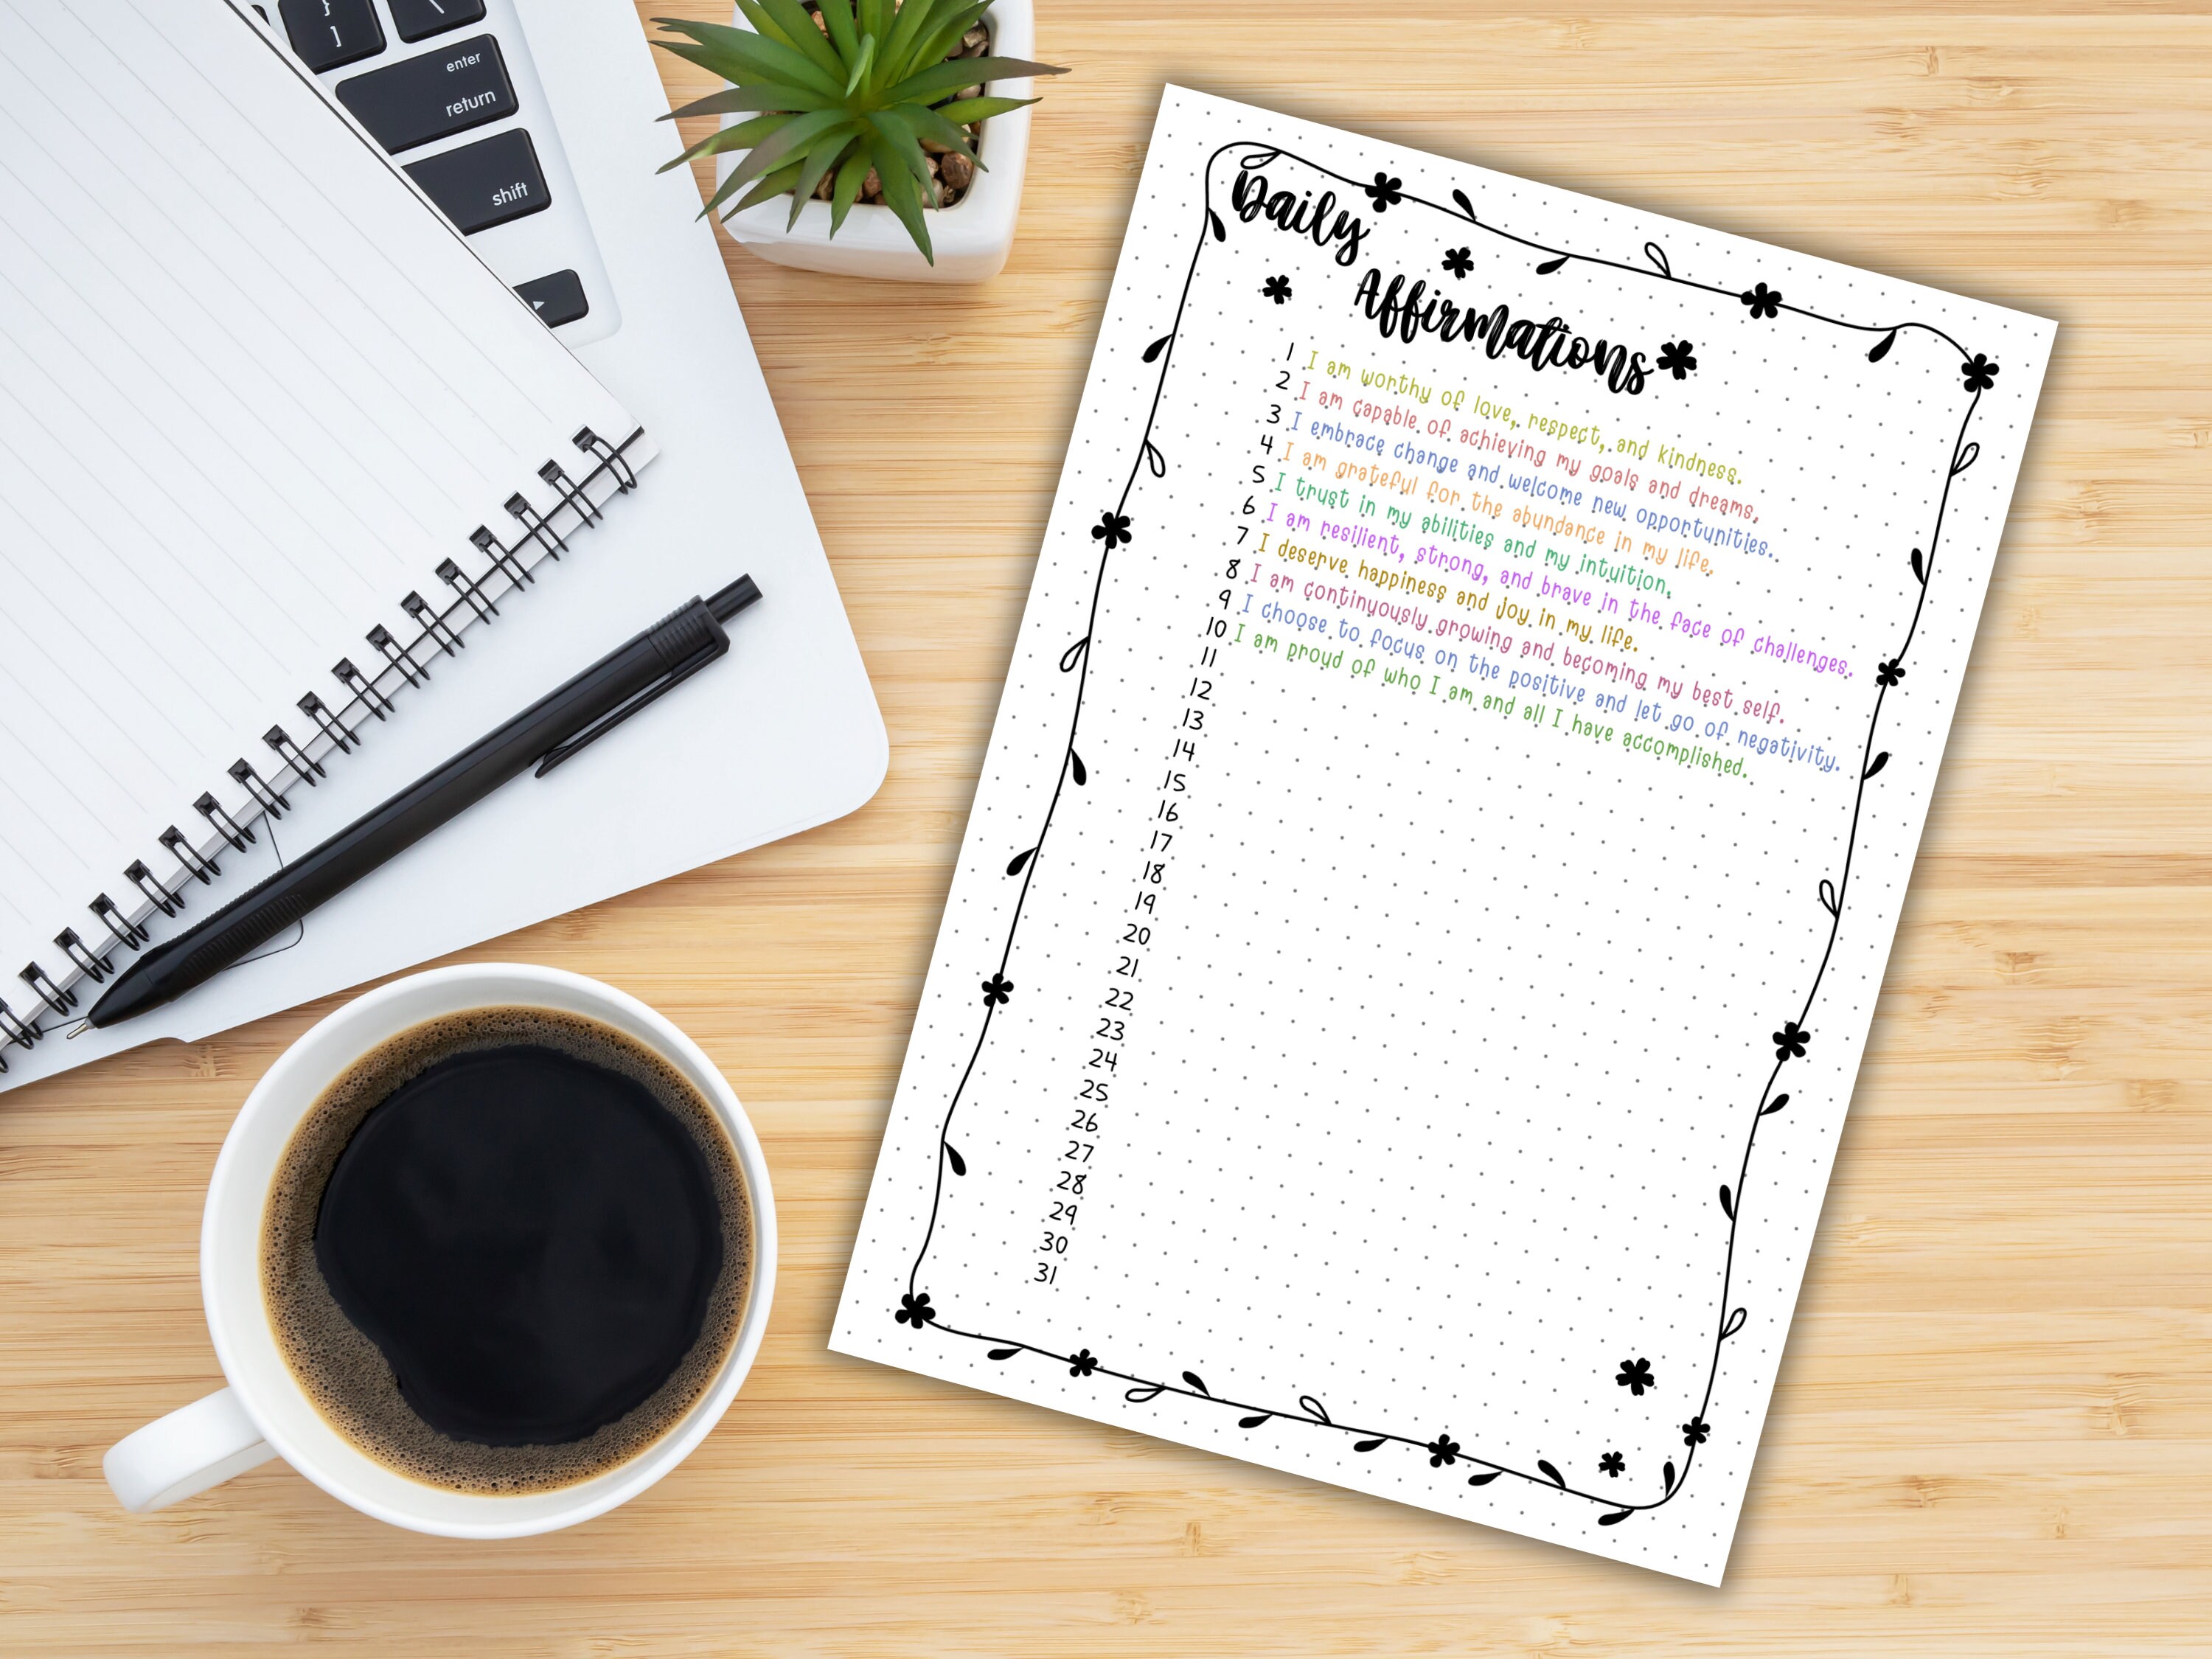 }
]
\
enter
return
shift
Daily
Affirmations
1 I am worthy of love, respect, and kindness.
2 I am capable of achieving my goals and dreams.
3 I embrace change and welcome new opportunities.
4 I am grateful for the abundance in my life.
5 I trust in my abilities and my intuition.
6 I am resilient, strong, and brave in the face of challenges.
7 I deserve happiness and joy in my life.
8 I am continuously growing and becoming my best self.
9 I choose to focus on the positive and let go of negativity.
10 I am proud of who I am and all I have accomplished.
11
12
13
14
15
16
17
18
19
20
21
22
23
24
25
26
27
28
29
30
31